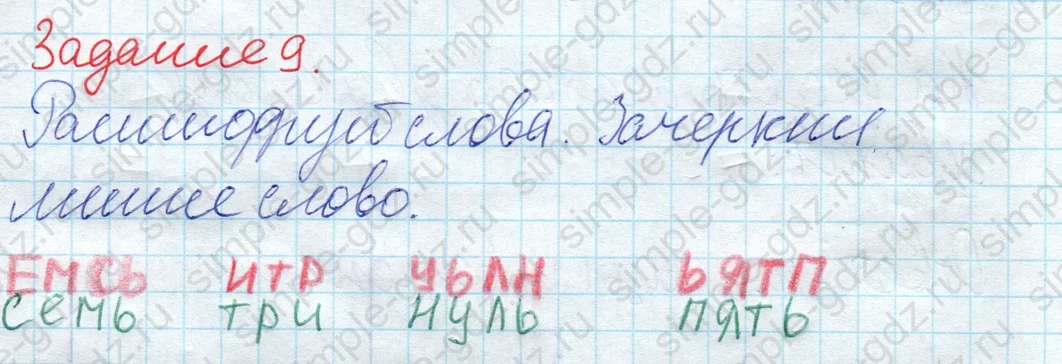 Задание 9.
Расшифруй слова. Зачеркни
лишнее слово.
ЕМСЬ ИТР УЬЛН ЬЯТП
семь три нуль пять